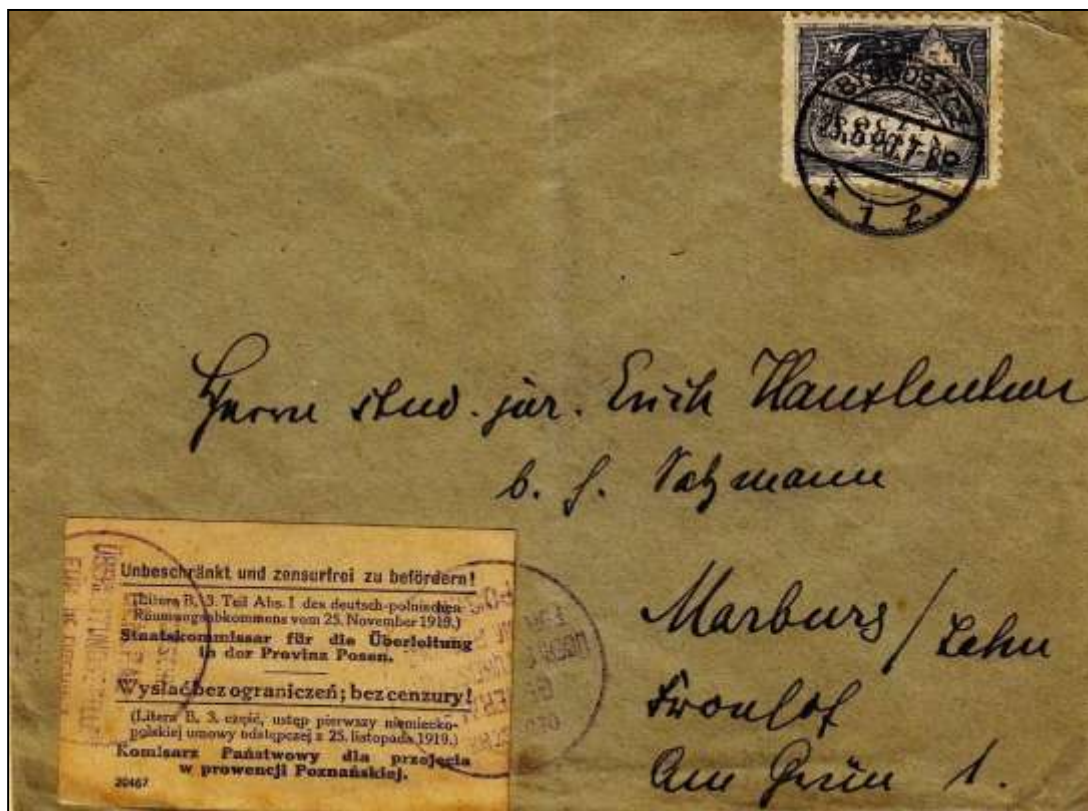 BYDGOSZCZ
* 1 l
Herrn stud. jur. Erich
b. H. Salzmann
Marburg / Lahn
Fronhof
Am Grün 1.
Unbeschränkt und zensurfrei zu befördern!
(Litera B, 3. Teil Abs. I des deutsch-polnischen
Räumungsabkommens vom 25. November 1919.)
Staatskommissar für die Überleitung
in der Provinz Posen.
Wysłać bez ograniczeń; bez cenzury!
(Litera B, 3. część, ustęp pierwszy niemiecko-
polskiej umowy odstępczej z 25. listopada 1919.)
Komisarz Państwowy dla przejęcia
w prowencji Poznańskiej.
20467